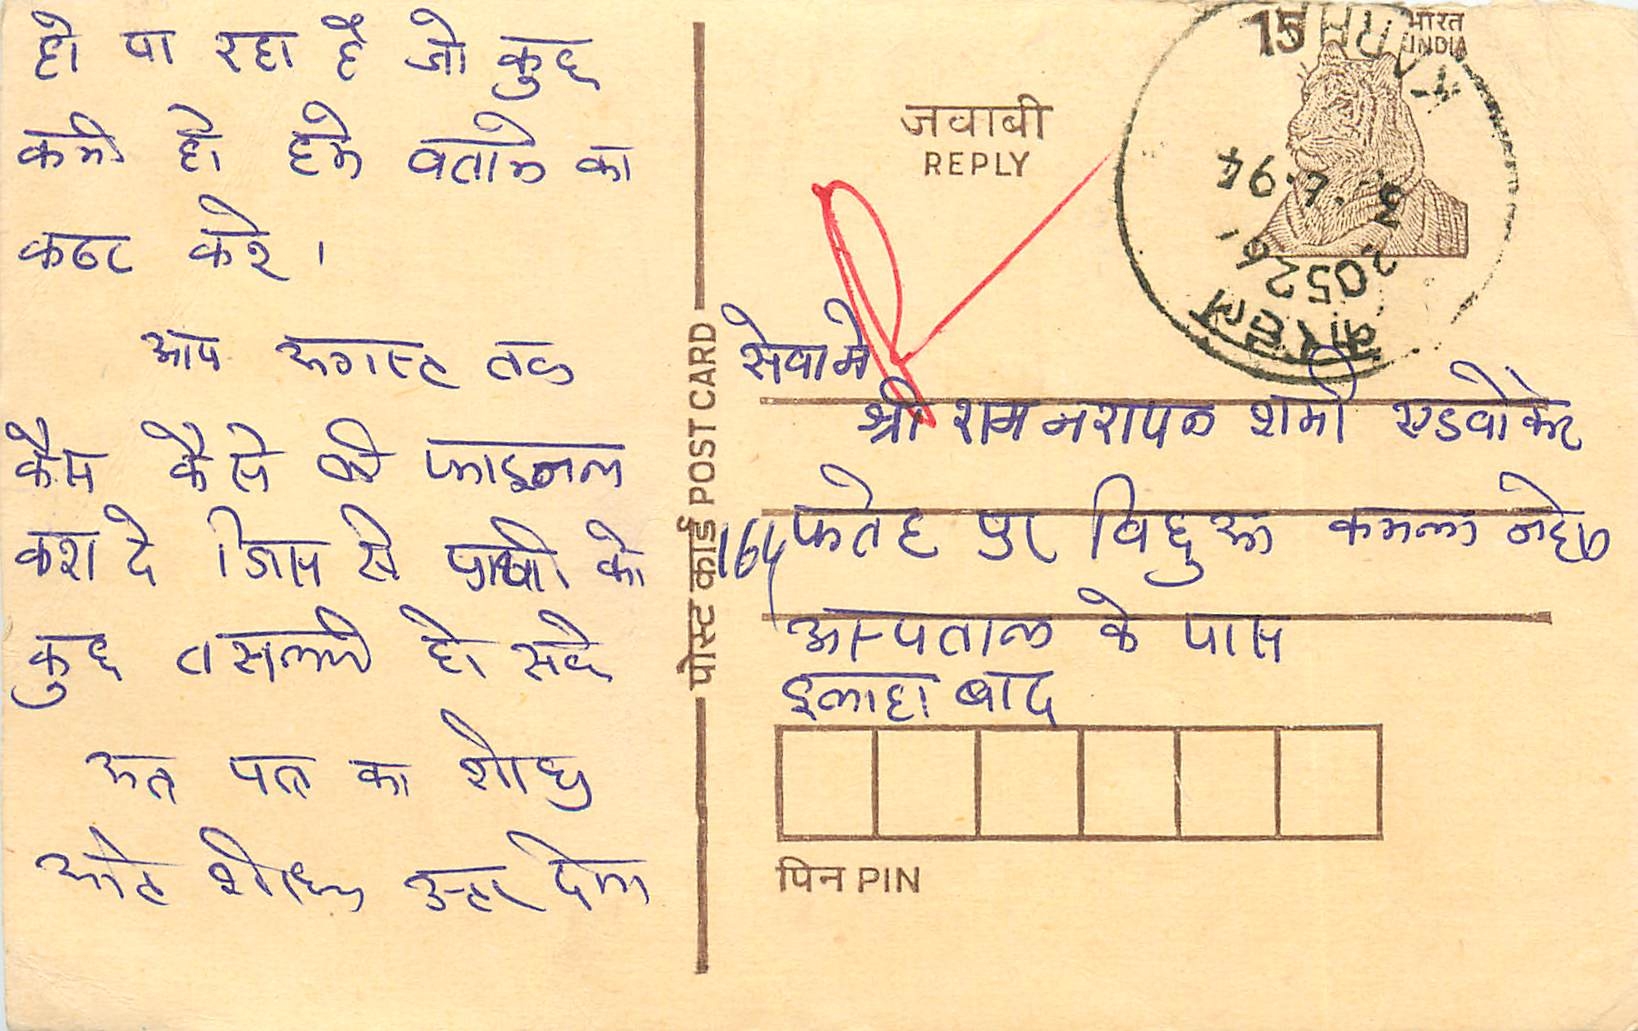 हो पा रहा है जो कुछ
कमी हो हमे बताने का
कष्ट करे।
आप अगस्त तक
केस कैसे भी फाइनल
करा दे जिस से प्रार्थी को
कुछ तसल्ली हो सके
अतः पत्र का शीघ्र
अति शीघ्र उत्तर देना
पोस्ट कार्ड POST CARD
जवाबी
REPLY
15
भारत
INDIA
करहल
205261
94
सेवा मे
श्री राम नरायण शर्मा एडवोकेट
164 फतेह पुर बिछुआ कमला नेहरू
अस्पताल के पास
इलाहाबाद
पिन PIN